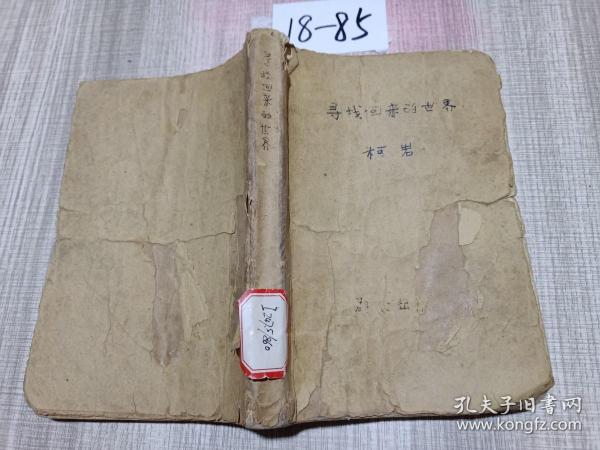 18-85
寻找回来的世界
寻找回来的世界
柯岩
孔夫子旧书网
www.kongfz.com